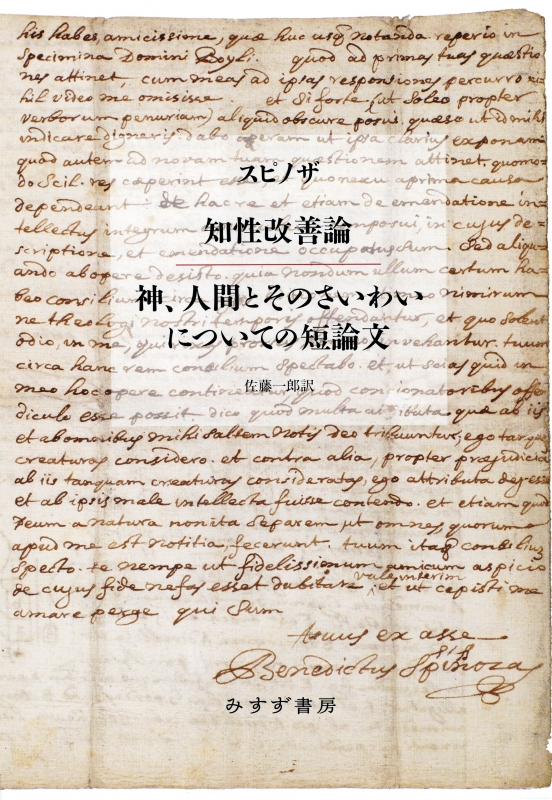 his habes, amicissime, quæ huc usq notanda reperio in
Specimina Domini Boyli. quod ad primas tuas quæstio
nes attinet, cum meas ad ipsas responsiones percurro ni-
hil video me omisisse. et si forte (ut soleo propter
verborum penuriam) aliquid obscure posui, quæso ut id mihi
indicare digneris dabo operam ut ipsa clarius exponam
quod autem ad novam tuam quæstionem attinet, quomo-
do Scil. res cæperint esse et quo nexu a prima causa
dependeant: de hac re et etiam de emendatione in-
tellectus integrum composui, in cujus de-
scriptione, et emendatione occupatus sum. Sed aliqu-
ando ab opere desisto. quia nondum ullum certum ha-
beo consilium nimirum
ne theologi nostri temporis offendantur, et quo solent
odio, in me, qui tuum
circa hanc rem consilium Spectabo. et ut scias quid in
meo hoc opere contineatur quod concionatoribus offen
diculo esse possit dico quod multa attributa quæ ab iis
et ab omnibus mihi saltem notis deo tribuuntur, ego tanquam
creaturas considero. et contra alia, propter præjudicia
ab iis tanquam creaturas considerata, ego attributa dei esse
et ab ipsis male intellecta fuisse contendo. et etiam quod
Deum a natura non ita Separem ut omnes quorum
apud me est notitia, fecerunt. tuum itaq consilium
Specto. te nempe ut fidelissimum amicum aspicio
de cujus fide nefas esset dubitare vale interim et ut cepisti me
amare perge qui Sum
スピノザ
知性改善論
神、人間とそのさいわい
についての短論文
佐藤一郎訳
tuus ex asse
Benedictus Spinoza
みすず書房